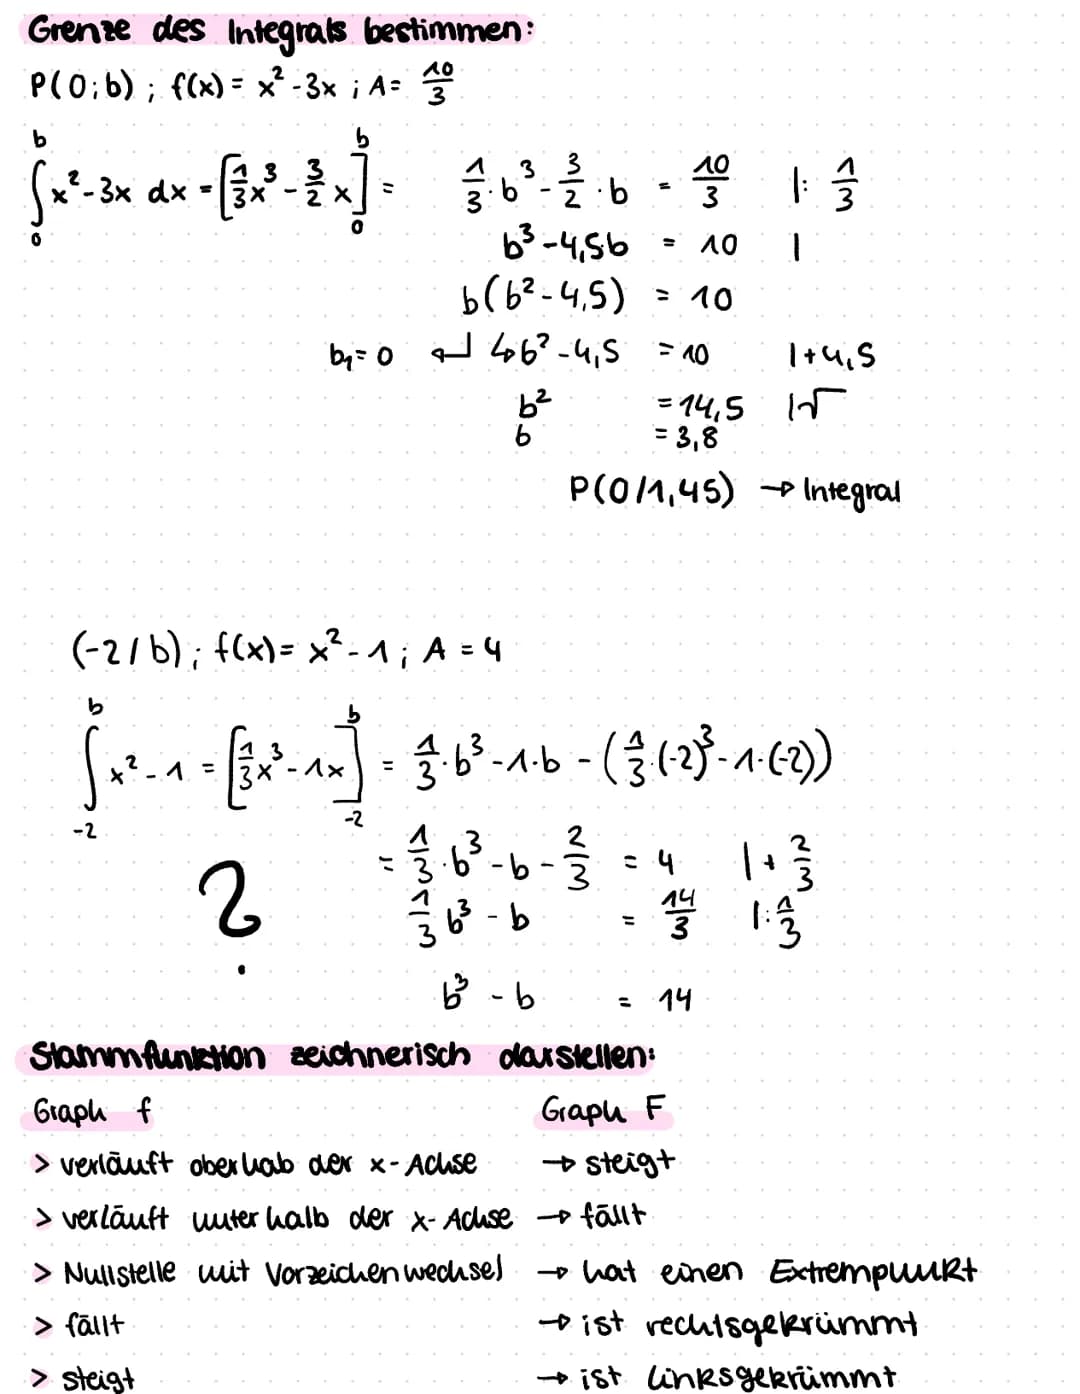 Grenze des Integrals bestimmen:
P(0;b) ; f(x) = x² - 3x ; A = 10/3
∫₀ᵇ x² - 3x dx = [1/3 x³ - 3/2 x]₀ᵇ = 1/3 · b³ - 3/2 · b = 10/3 | : 1/3
b³ - 4,5b = 10 |
b(b² - 4,5) = 10
b₁ = 0 ↵ ↳ b² - 4,5 = 10 | + 4,5
b² = 14,5 | √
b = 3,8
P(0/1,45) → Integral
(-2/b) ; f(x) = x² - 1 ; A = 4
∫₋₂ᵇ x² - 1 = [1/3 x³ - 1x]₋₂ᵇ = 1/3 · b³ - 1 · b - (1/3 (-2)³ - 1 · (-2))
= 1/3 · b³ - b - 2/3 = 4 | + 2/3
?
1/3 b³ - b = 14/3 | : 1/3
b³ - b = 14
Stammfunktion zeichnerisch darstellen:
Graph f Graph F
> verläuft oberhab der x-Achse → steigt
> verläuft unterhalb der x-Achse → fällt
> Nullstelle mit Vorzeichenwechsel → hat einen Extrempunkt
> fällt → ist rechtsgekrümmt
> steigt → ist linksgekrümmt